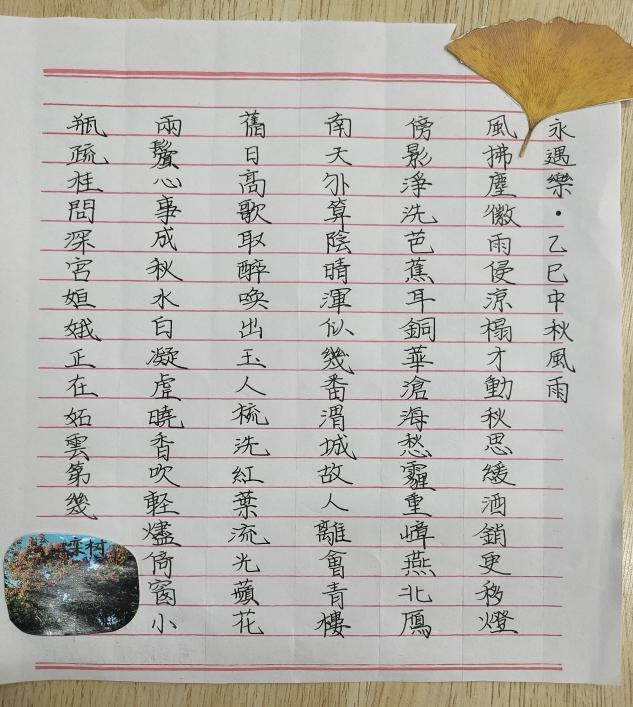 永遇樂·乙巳中秋風雨
風拂塵徽雨侵涼榻才動秋思緩酒銷更移燈
傍影淨洗芭蕉耳銅華滄海愁霾重嶂燕北鴈
南天外算陰晴渾似幾番渭城故人離會青樓
舊日高歌取醉喚出玉人梳洗紅葉流光蘋花
兩鬢心事成秋水白凝虛曉香吹軽燼倚窗小
瓶疏桂問深宮姮娥正在妬雲第幾
村